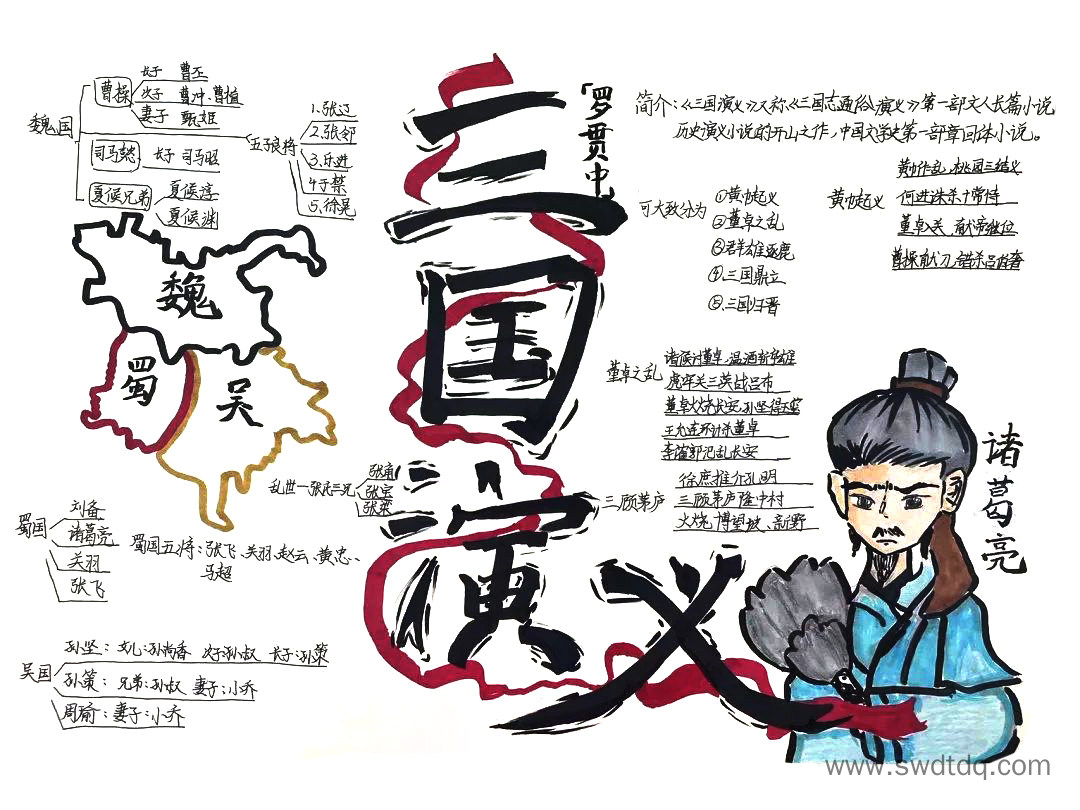 魏国
曹操
长子 曹丕
次子 曹冲、曹植
妻子 甄姬
司马懿
长子 司马昭
夏候兄弟
夏候惇
夏候渊
五子良将
1.张辽
2.张郃
3.乐进
4于禁
5.徐晃
魏
蜀
吴
三国演义
罗贯中
简介:《三国演义》又称《三国志通俗演义》第一部文人长篇小说
历史演义小说的开山之作,中国文学史第一部章回体小说。
可大致分为
①黄巾起义
②董卓之乱
③群雄逐鹿
④三国鼎立
⑤三国归晋
黄巾起义
黄巾作乱,桃园三结义
何进诛杀十常侍
董卓入关 献帝继位
曹操献刀,错杀吕伯奢
董卓之乱
诸侯讨董卓,温酒斩华雄
虎牢关三英战吕布
董卓火烧长安,孙坚得玉玺
王允连环计杀董卓
李傕郭汜乱长安
三顾茅庐
徐庶推介孔明
三顾茅庐隆中村
火烧博望坡、新野
乱世一张氏三兄
张角
张宝
张梁
蜀国
刘备
诸葛亮
关羽
张飞
蜀国五将:张飞、关羽、赵云、黄忠、
马超
吴国
孙坚:女儿:孙尚香 次子:孙叔 长子:孙策
孙策:兄弟:孙叔 妻子:小乔
周瑜:妻子:小乔
诸葛亮
www.swdtdq.com